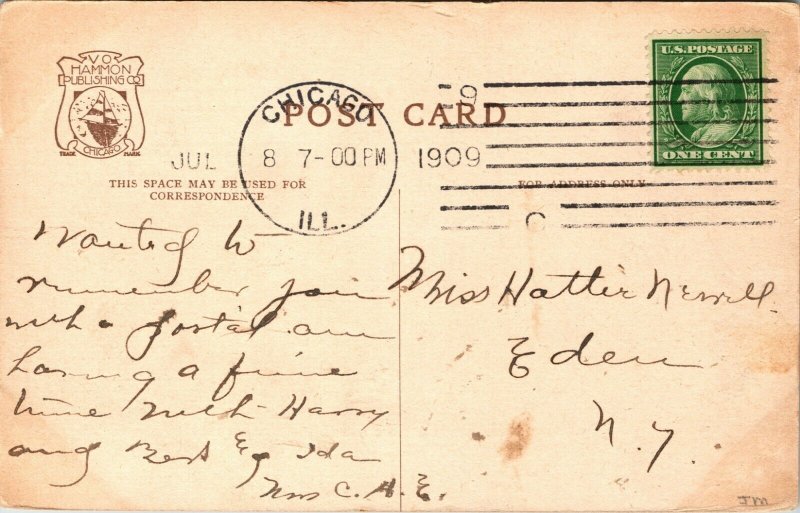 V O
HAMMON
PUBLISHING CO
TRADE MARK
CHICAGO
POST CARD
CHICAGO
JUL 8 7-00 PM 1909
ILL.
9
C
U.S. POSTAGE
ONE CENT
THIS SPACE MAY BE USED FOR
CORRESPONDENCE
FOR ADDRESS ONLY
Wanted to
remember you
with a postal am
having a fine
time with Harry
and Bert Ida
Mrs C. H. E.
Miss Hattie Newell
Eden
N. Y.
JM